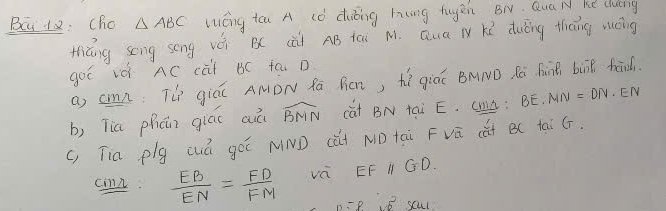 Bài 12: Cho △ ABC vuông tại A có đường trung tuyến BN. Qua N kẻ đường
thẳng song song với BC cắt AB tại M. Qua N kẻ đường thẳng vuông
góc với AC cắt BC tại D.
a, cmr: Tứ giác AMDN là hcn, tứ giác BMND là hình bình hành.
b, Tia phân giác của \widehat{BMN} cắt BN tại E. cmr: BE.MN = DN.EN
c, Tia p/g của góc MND cắt MD tại F và cắt BC tại G.
cmr: \frac{EB}{EN} = \frac{FD}{FM} và EF // GD.
vẽ sau